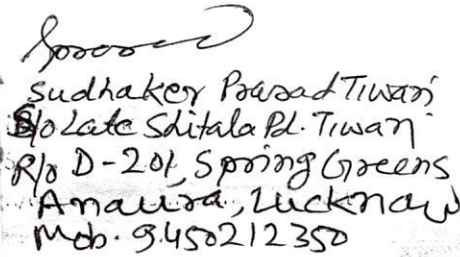 Sudhaker Prasad Tiwari
S/o Late Shitala Pd. Tiwari
R/o D-201, Spring Greens
Anaura, Lucknow
Mob. 9450212350